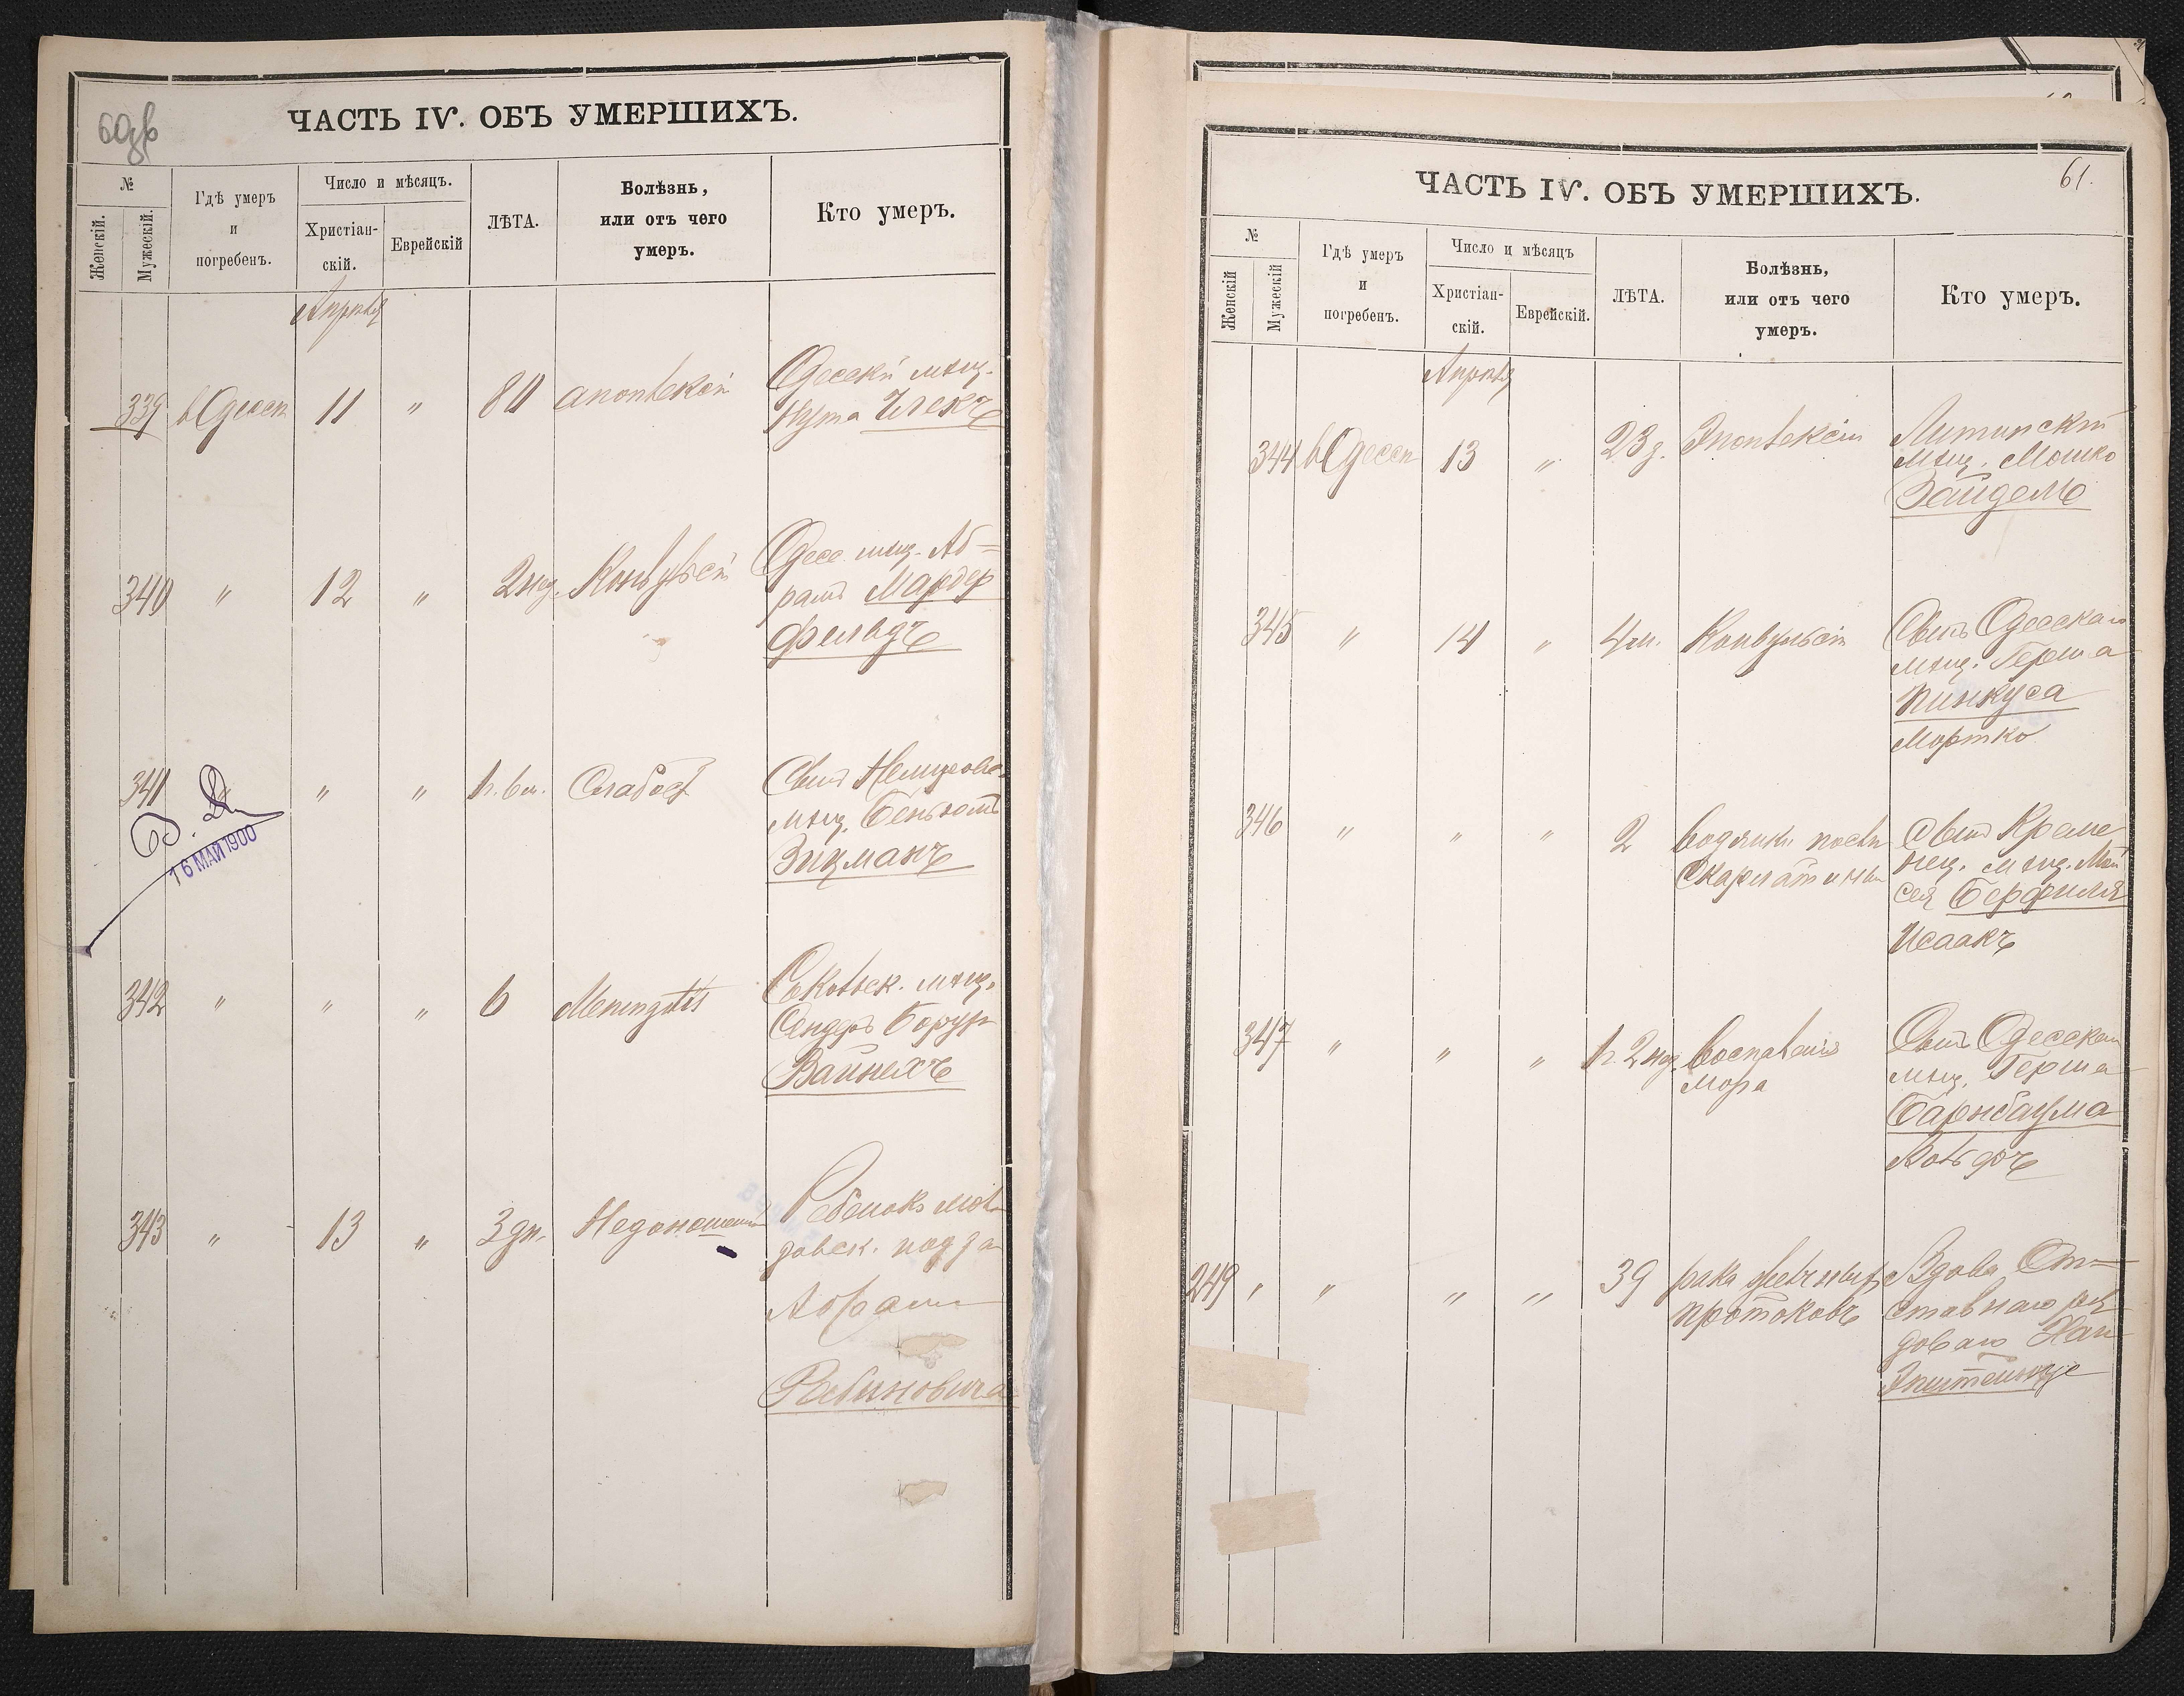 60об
ЧАСТЬ IV. ОБЪ УМЕРШИХЪ.
№
Женскій.
Мужескій.
Гдѣ умеръ
и
погребенъ.
Число и мѣсяцъ.
Христіан-
скій.
Еврейскій
ЛѢТА.
Болѣзнь,
или отъ чего
умеръ.
Кто умеръ.
Апрѣля
339 въ Одессѣ 11 " 80 апоплексіи Одесскій мѣщ.
Нута
340 " 12 " 2 нед. Конвульсіи Одесс. мѣщ. Аб-
рамъ Мардер
фельдъ
341 " " " 1 г. 6 м. Слабост Сынъ Немировс.
мѣщ.
Зицманъ
16 МАЙ 1900
342 " " " 6 Meningitis мѣщ.
Сендеръ Борух
Вайнехъ
343 " 13 " 3 дн. Недоношен Ребенокъ мол
давск. подда
Абрама
Рабиновича
61.
ЧАСТЬ IV. ОБЪ УМЕРШИХЪ.
№
Женскій
Мужескій
Гдѣ умеръ
и
погребенъ.
Число и мѣсяцъ
Христіан-
скій.
Еврейскій.
ЛѢТА.
Болѣзнь,
или отъ чего
умеръ.
Кто умеръ.
Апрѣля
344 въ Одессѣ 13 " 23 г. Эпилепсіи Литинскій
мѣщ. Мошко
Зайдель
345 " 14 " 4 м. Конвульсіи Сынъ Одесскаго
мѣщ. Герша
Пинкуса
Мортко
346 " " " 2 водянки послѣ Сынъ Креме
скарлатины нец. мѣщ. Мой
сея Берфиля
Исаакъ
347 " " " 1 г. 2 нед. Воспаленія Сынъ Одесскаго
мозга мѣщ. Герша
Барнбаума
Вольфъ
249 " " " " 39 рака желчныхъ Вдова От-
протоковъ ставного ря
дового Хая